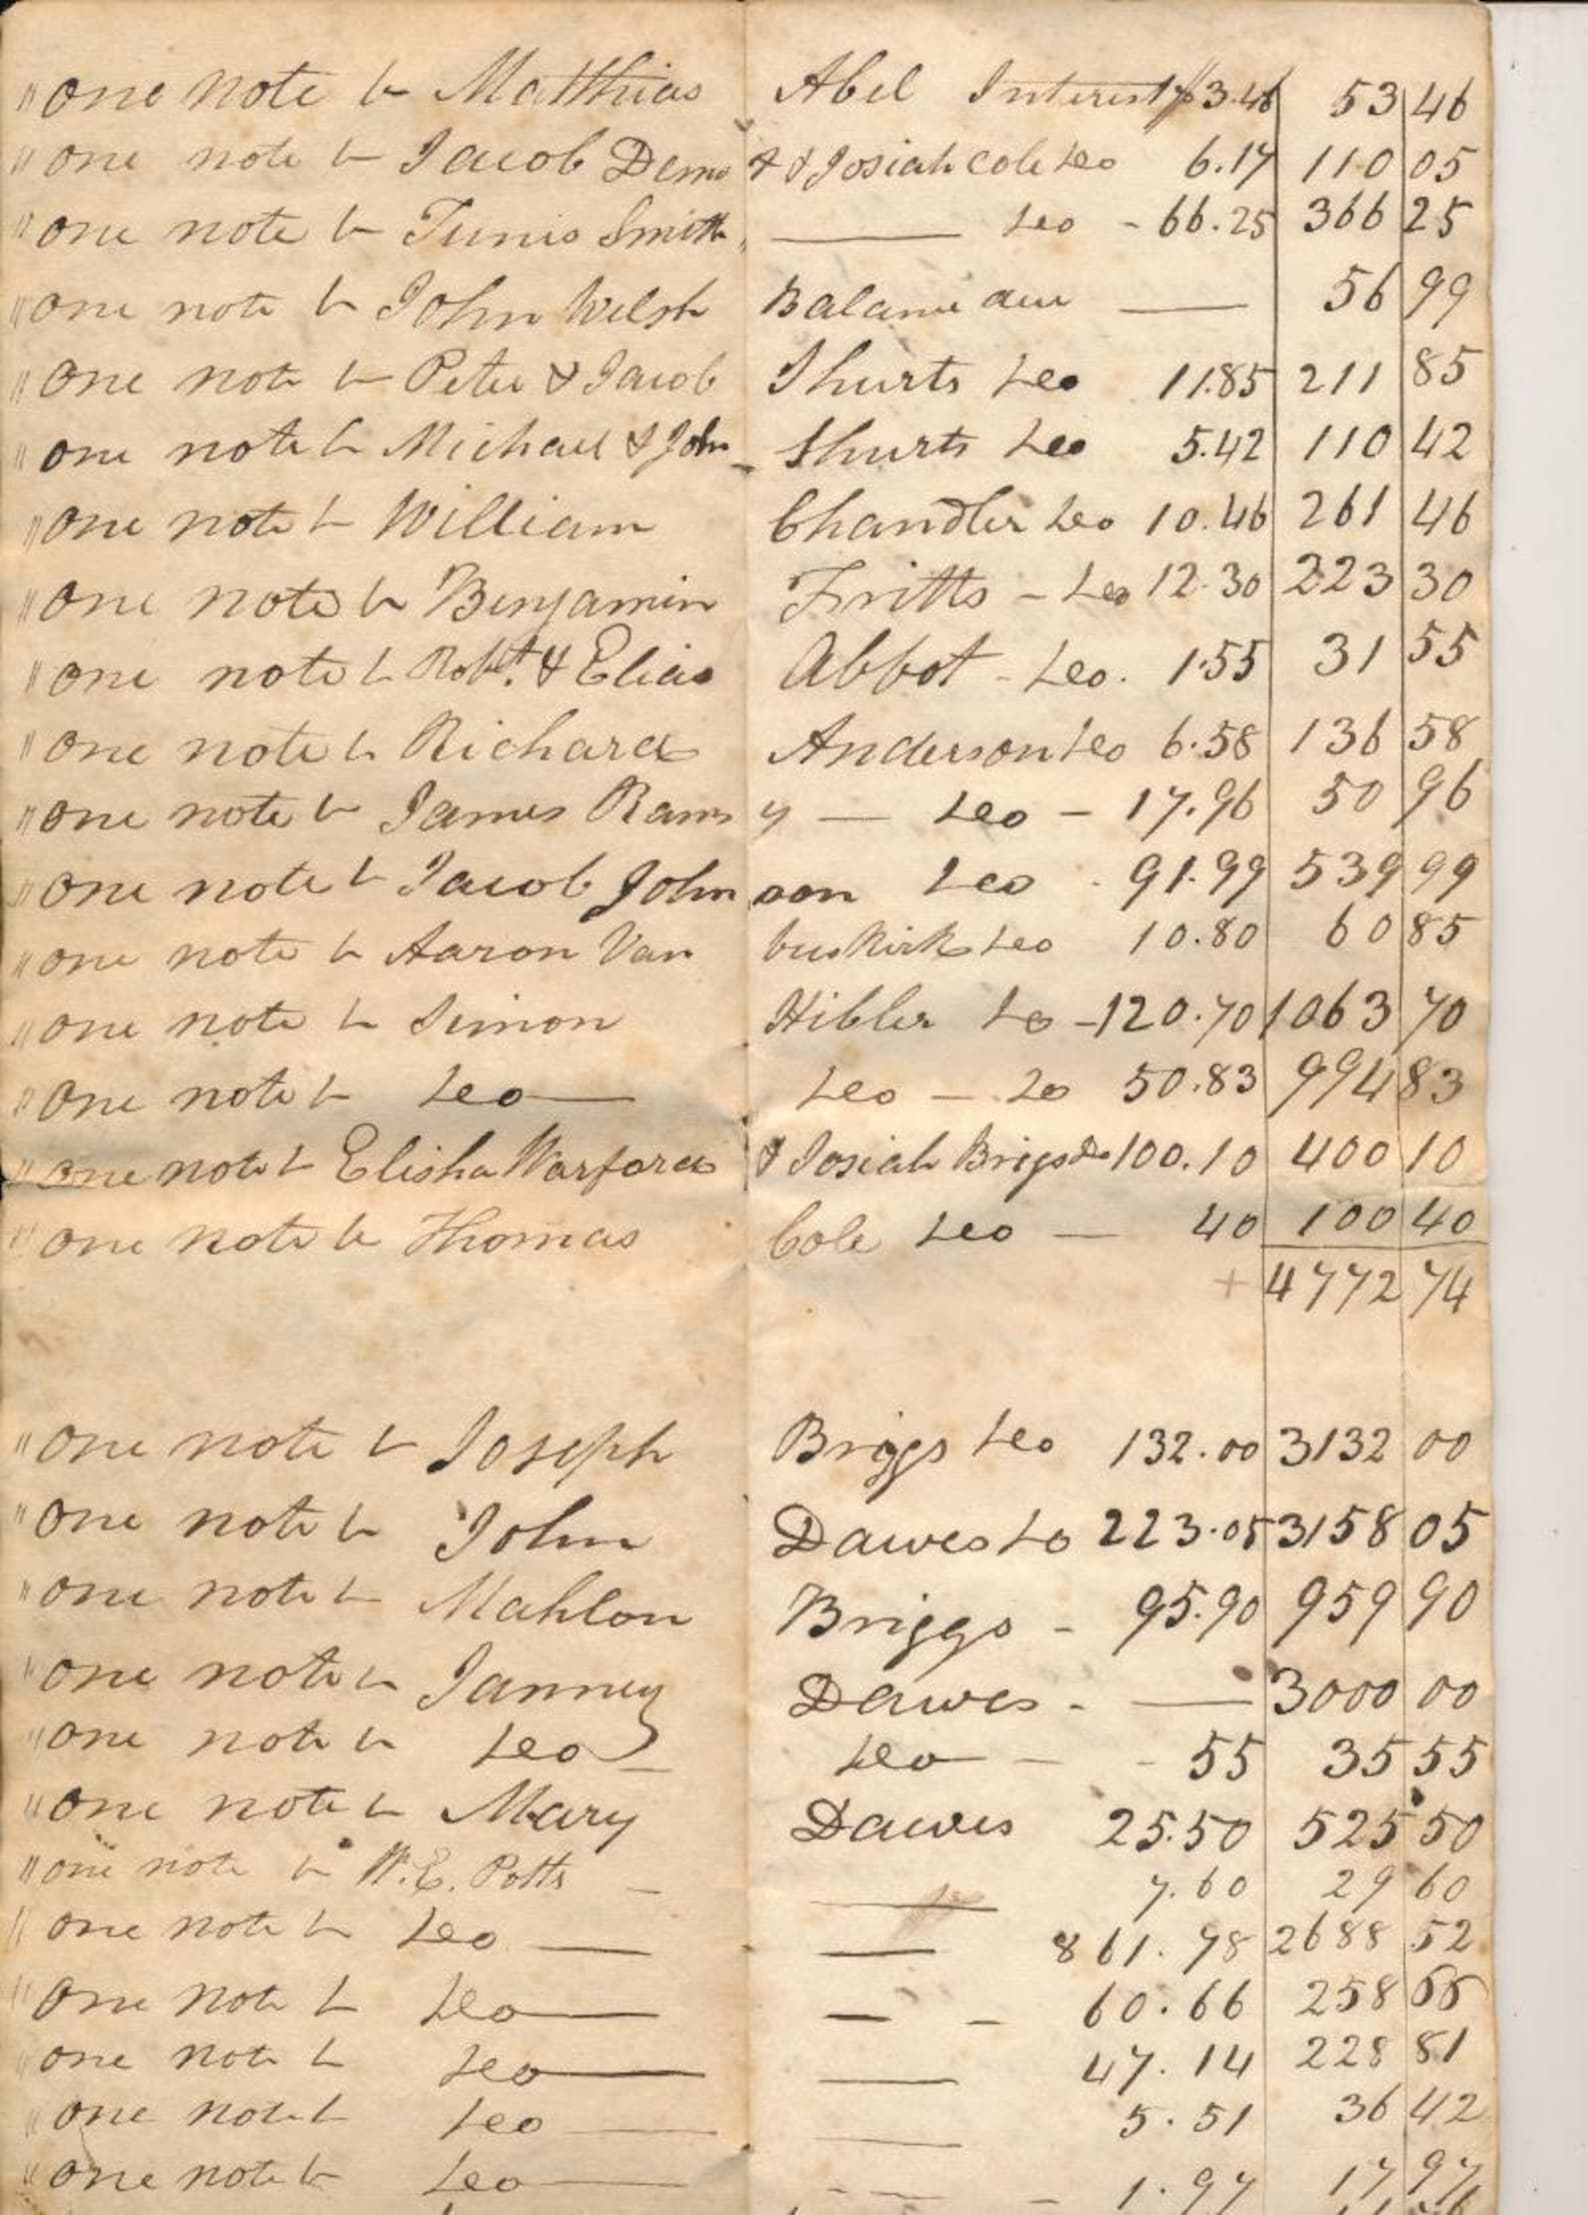 " one note to Matthias Abel Interest $3.46 53 46
" one note to Jacob Demo & Josiah Cole Do 6.17 110 05
" one note to Tunis Smith — Do - 66.25 366 25
" one note to John Welsh Balance due — 56 99
" one note to Peter & Jacob Shurts Do 11.85 211 85
" one note to Michael & John Shurts Do 5.42 110 42
" one note to William Chandler Do 10.46 261 46
" one note to Benjamin Fritts - Do 12.30 223 30
" one note to Robt. & Elias Abbot - Do. 1.55 31 55
" one note to Richard Anderson Do 6.58 136 58
" one note to James Ramsy — Do - 17.96 50 96
" one note to Jacob Johnson Do - 91.99 539 99
" one note to Aaron Van buskirk Do 10.80 60 85
" one note to Simon Hibler Do - 120.70 1063 70
" one note to Do — Do - Do 50.83 994 83
" one note to Elisha Warford & Josiah Brigs Do 100.10 400 10
" one note to Thomas Cole Do — 40 100 40
+ 4772 74
" one note to Joseph Briggs Do 132.00 3132 00
" one note to John Dawes Do 223.05 3158 05
" one note to Mahlon Briggs - 95.90 959 90
" one note to Janney Dawes - — 3000 00
" one note to Do - Do - - 55 35 55
" one note to Mary Dawes 25.50 525 50
" one note to W. E. Potts - — 7.60 29 60
" one note to Do — — 861.78 2688 52
" one note to Do — — - 60.66 258 66
" one note to Do — — 47.14 228 81
" one note to Do — — 5.51 36 42
" one note to Do — - - - 1.97 17 97